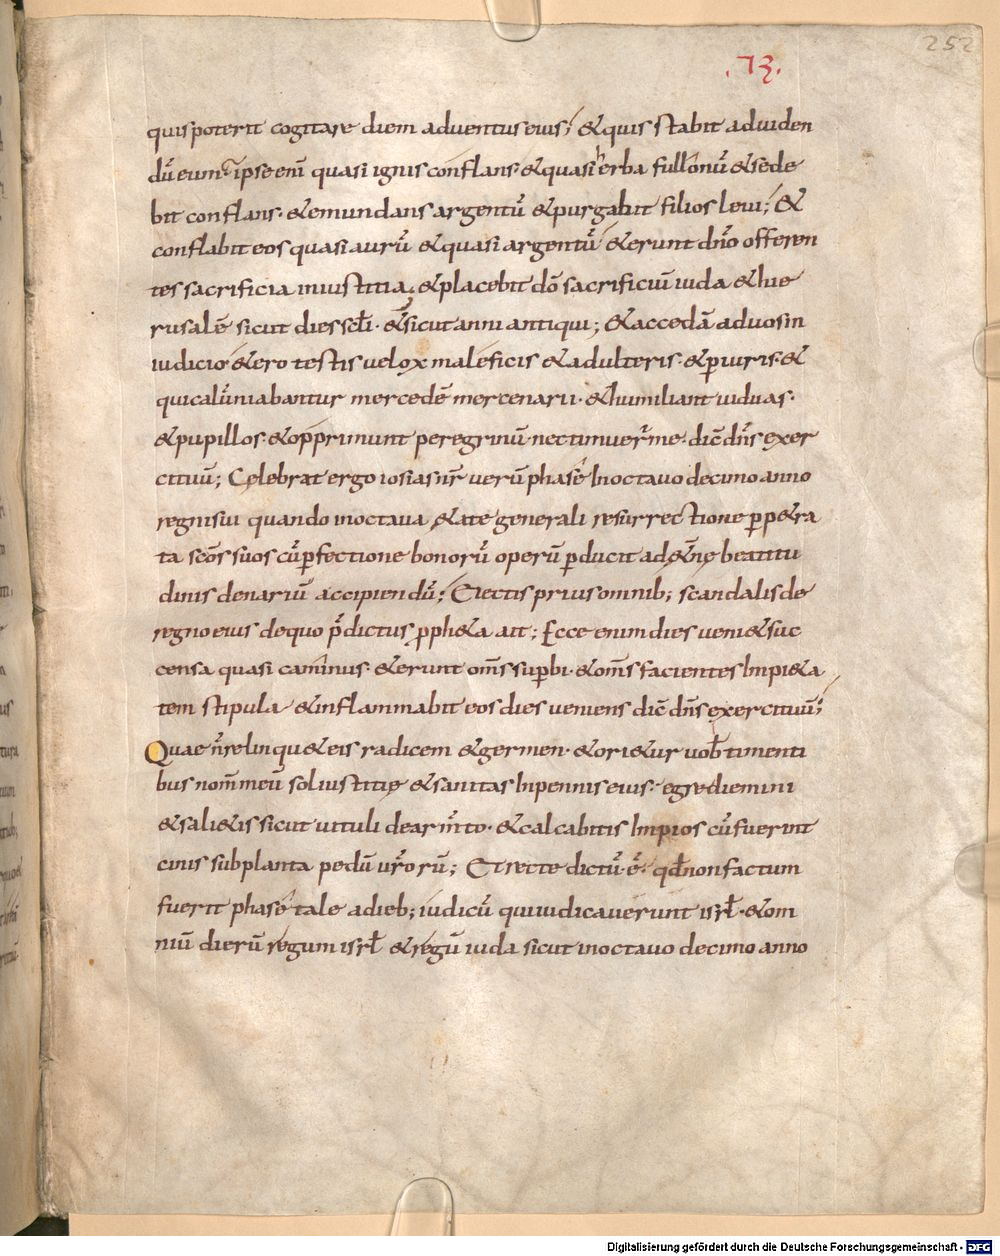 252
.73.
quis poterit cogitare diem aduentus eius; & quis stabit ad uiden
dū eum ipse eni quasi ignis conflans· & quasi herba fullonū & sede
bit conflans· & emundans argentū & purgabit filios leui; &
conflabit eos quasi aurū & quasi argentū & erunt dn̄o offeren
tes sacrificia in iustitia; & placebit dō sacrificiū iuda & hie
rusalē sicut dies sc̄li· & sicut anni antiqui; & accedā ad uos in
iudicio & ero testis uelox maleficis & adulteris· & ꝑiuris· &
qui calūniabantur mercedē mercenarii· & humiliant uiduas·
& pupillos· & opprimunt peregrinū nec timuer̄ me· dic̄ dn̄s exer
cituū; Celebrat ergo iosias nr̄ uerū phase In octauo decimo anno
regni sui quando in octaua & ate generali resurrectione ꝑp&ra
ta sc̄os suos cū ꝑfectione bonorū operū ꝑducit ad &n̄ę beatitu
dinis denariū accipiendū; Eiectis prius omnib; scandalis de
regno eius de quo p̄dictus ꝓph&a ait; Ecce enim dies ueni& suc
censa quasi caminus· & erunt om̄s suꝑbi· & om̄s facientes Impi&a
tem stipula & inflammabit eos dies ueniens dic̄ dn̄s exercituū;
Quae n̄ relinqu& eis radicem & germen· & ori&ur uob̄ timenti
bus nom̄ meū sol iustitię & sanitas In pennis eius· egrediemini
& sali&is sicut uituli de arm̄to· & calcabitis Impios cū fuerint
cinis sub planta pedū ur̄orū; Et recte dictū ē· qd̄ non factum
fuerit phase tale a dieb; iudicū qui iudicauerunt isrl̄· & om
niū dierū regum isrl̄ & regū iuda sicut in octauo decimo anno
Digitalisierung gefördert durch die Deutsche Forschungsgemeinschaft - DFG